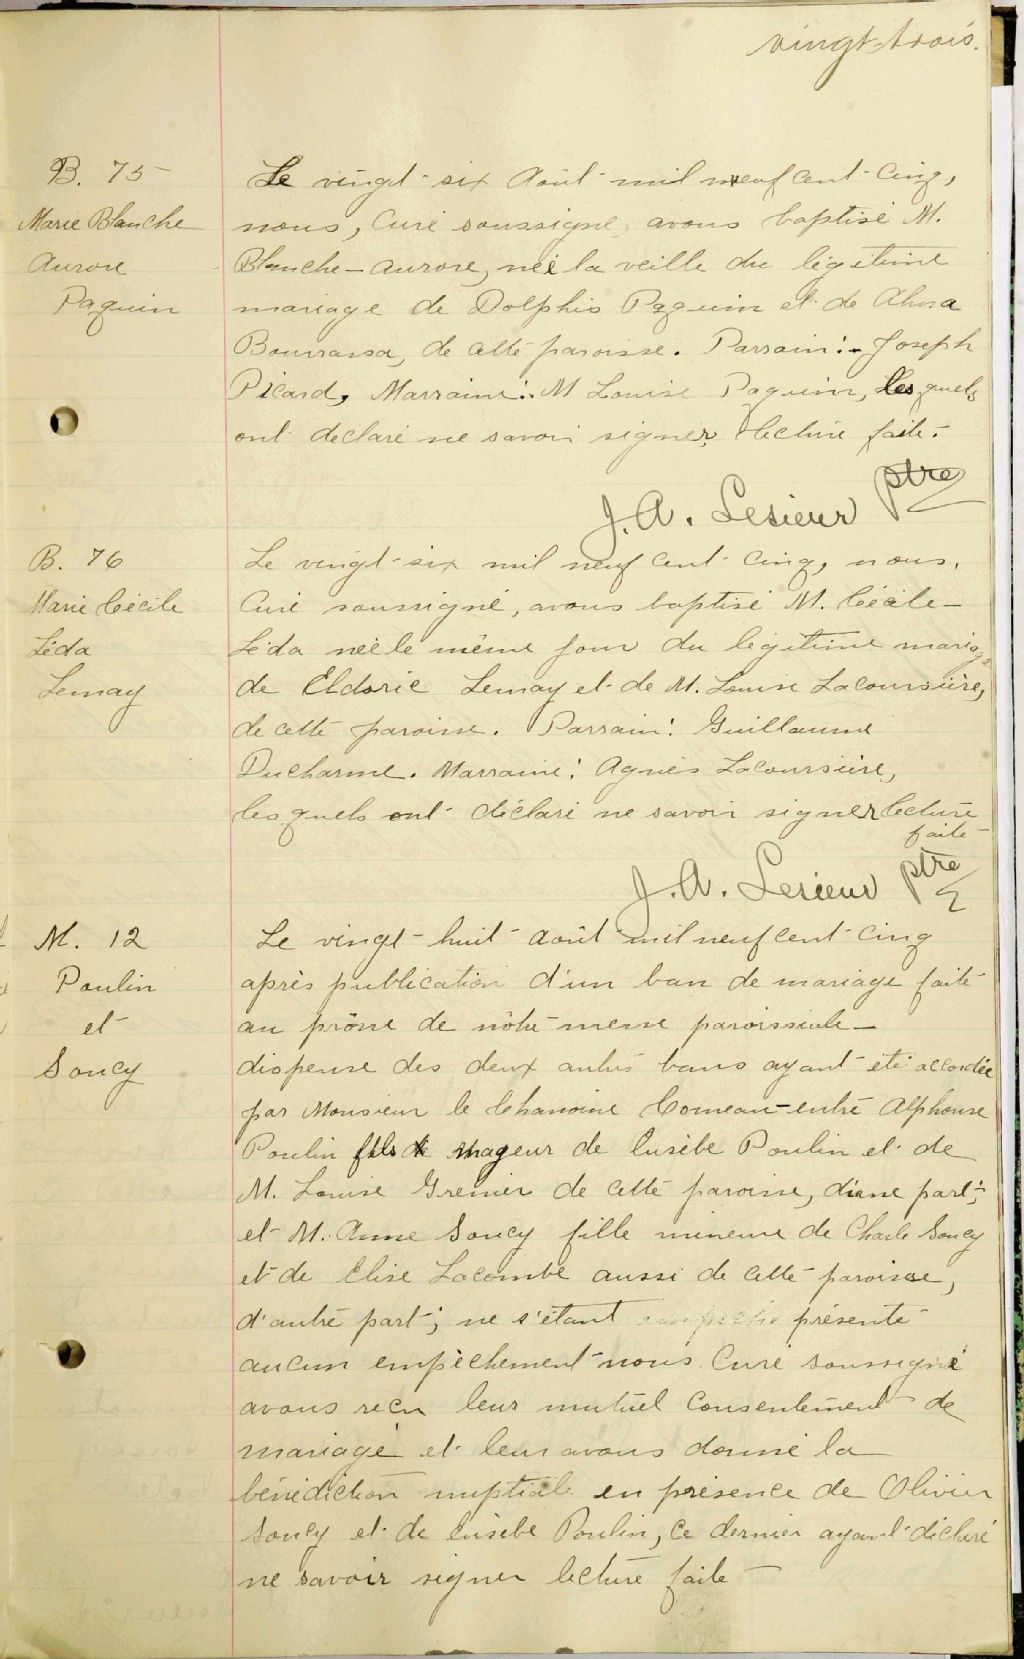 vingt-trois.
B. 75
Marie Blanche
Aurore
Paquin
Le vingt-six Août mil neuf cent cinq,
nous, Curé soussigné, avons baptisé M.
Blanche-Aurore, née la veille du légitime
mariage de Dolphis Paquin et de
Bourrassa, de cette paroisse. Parrain:- Joseph
Picard, Marraine:- M Louise Paquin, lesquels
ont déclaré ne savoir signer, lecture faite.
J. A. Lesieur ptre
B. 76
Marie Cécile
Léda
Lemay
Le vingt-six mil neuf cent cinq, nous,
Curé soussigné, avons baptisé M. Cécile-
Léda née le même jour du légitime mariage
de Eldoric Lemay et de M. Louise Lacoursière,
de cette paroisse. Parrain: Guillaume
Ducharme. Marraine: Agnès Lacoursière,
lesquels ont déclaré ne savoir signer lecture
faite
J. A. Lesieur ptre
M. 12
Poulin
et
Soucy
Le vingt-huit août mil neuf cent cinq
après publication d'un ban de mariage faite
au prône de nôtre messe paroissiale-
dispense des deux autres bans ayant été accordée
par Monsieur le Chanoine Comeau-entre Alphonse
Poulin fils mageur de Eusèbe Poulin et de
M. Louise Grenier de cette paroisse, d'une part;
et M. Anne Soucy fille mineure de Charle Soucy
et de Elise Lacombe aussi de cette paroisse,
d'autre part; ne s'étant présenté
aucun empêchement nous Curé soussigné
avons reçu leur mutuel consentement de
mariage et leur avons donné la
bénédiction nuptiale en présence de Olivier
Soucy et de Eusèbe Poulin, ce dernier ayant déclaré
ne savoir signer lecture faite